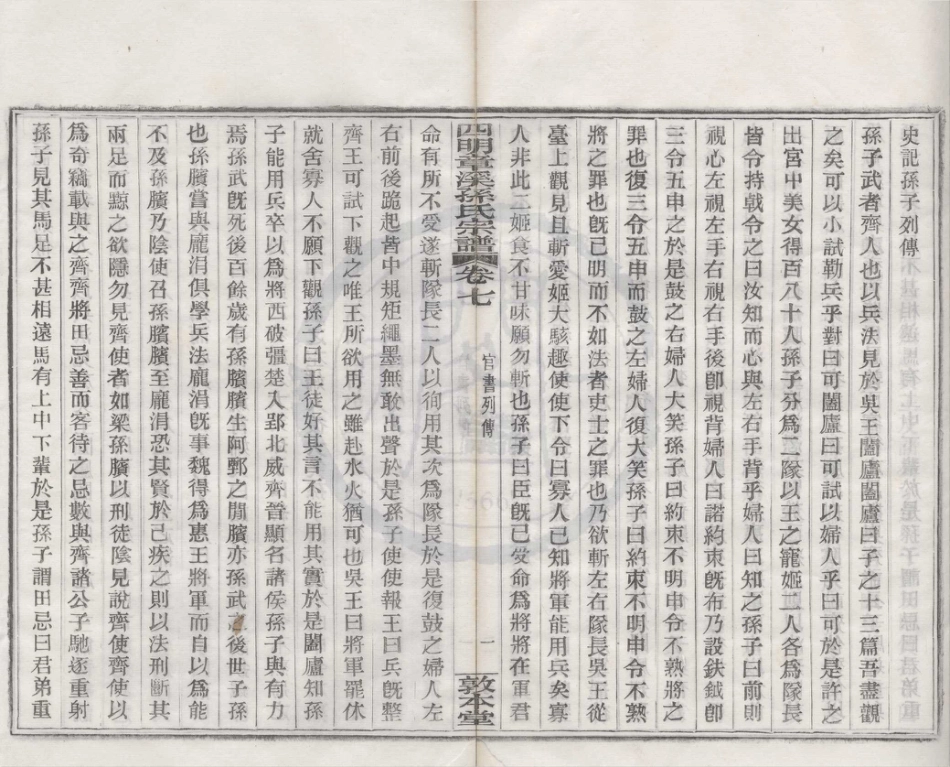 史記孫子列傳
孫子武者齊人也以兵法見於吳王闔廬闔廬曰子之十三篇吾盡觀
之矣可以小試勒兵乎對曰可闔廬曰可試以婦人乎曰可於是許之
出宮中美女得百八十人孫子分爲二隊以王之寵姬二人各爲隊長
皆令持戟令之曰汝知而心與左右手背乎婦人曰知之孫子曰前則
視心左視左手右視右手後卽視背婦人曰諾約束旣布乃設鈇鉞卽
三令五申之於是鼓之右婦人大笑孫子曰約束不明申令不熟將之
罪也復三令五申而鼓之左婦人復大笑孫子曰約束不明申令不熟
將之罪也旣已明而不如法者吏士之罪也乃欲斬左右隊長吳王從
臺上觀見且斬愛姬大駭趣使使下令曰寡人已知將軍能用兵矣寡
人非此二姬食不甘味願勿斬也孫子曰臣旣已受命爲將將在軍君
四明章溪孫氏宗譜 卷七 官書列傳 一 敦本堂
命有所不受遂斬隊長二人以徇用其次爲隊長於是復鼓之婦人左
右前後跪起皆中規矩繩墨無敢出聲於是孫子使使報王曰兵旣整
齊王可試下觀之唯王所欲用之雖赴水火猶可也吳王曰將軍罷休
就舍寡人不願下觀孫子曰王徒好其言不能用其實於是闔廬知孫
子能用兵卒以爲將西破彊楚入郢北威齊晉顯名諸侯孫子與有力
焉孫武旣死後百餘歲有孫臏臏生阿鄄之閒臏亦孫武之後世子孫
也孫臏嘗與龐涓俱學兵法龐涓旣事魏得爲惠王將軍而自以爲能
不及孫臏乃陰使召孫臏臏至龐涓恐其賢於己疾之則以法刑斷其
兩足而黥之欲隱勿見齊使者如梁孫臏以刑徒陰見說齊使齊使以
爲奇竊載與之齊齊將田忌善而客待之忌數與齊諸公子馳逐重射
孫子見其馬足不甚相遠馬有上中下輩於是孫子謂田忌曰君弟重